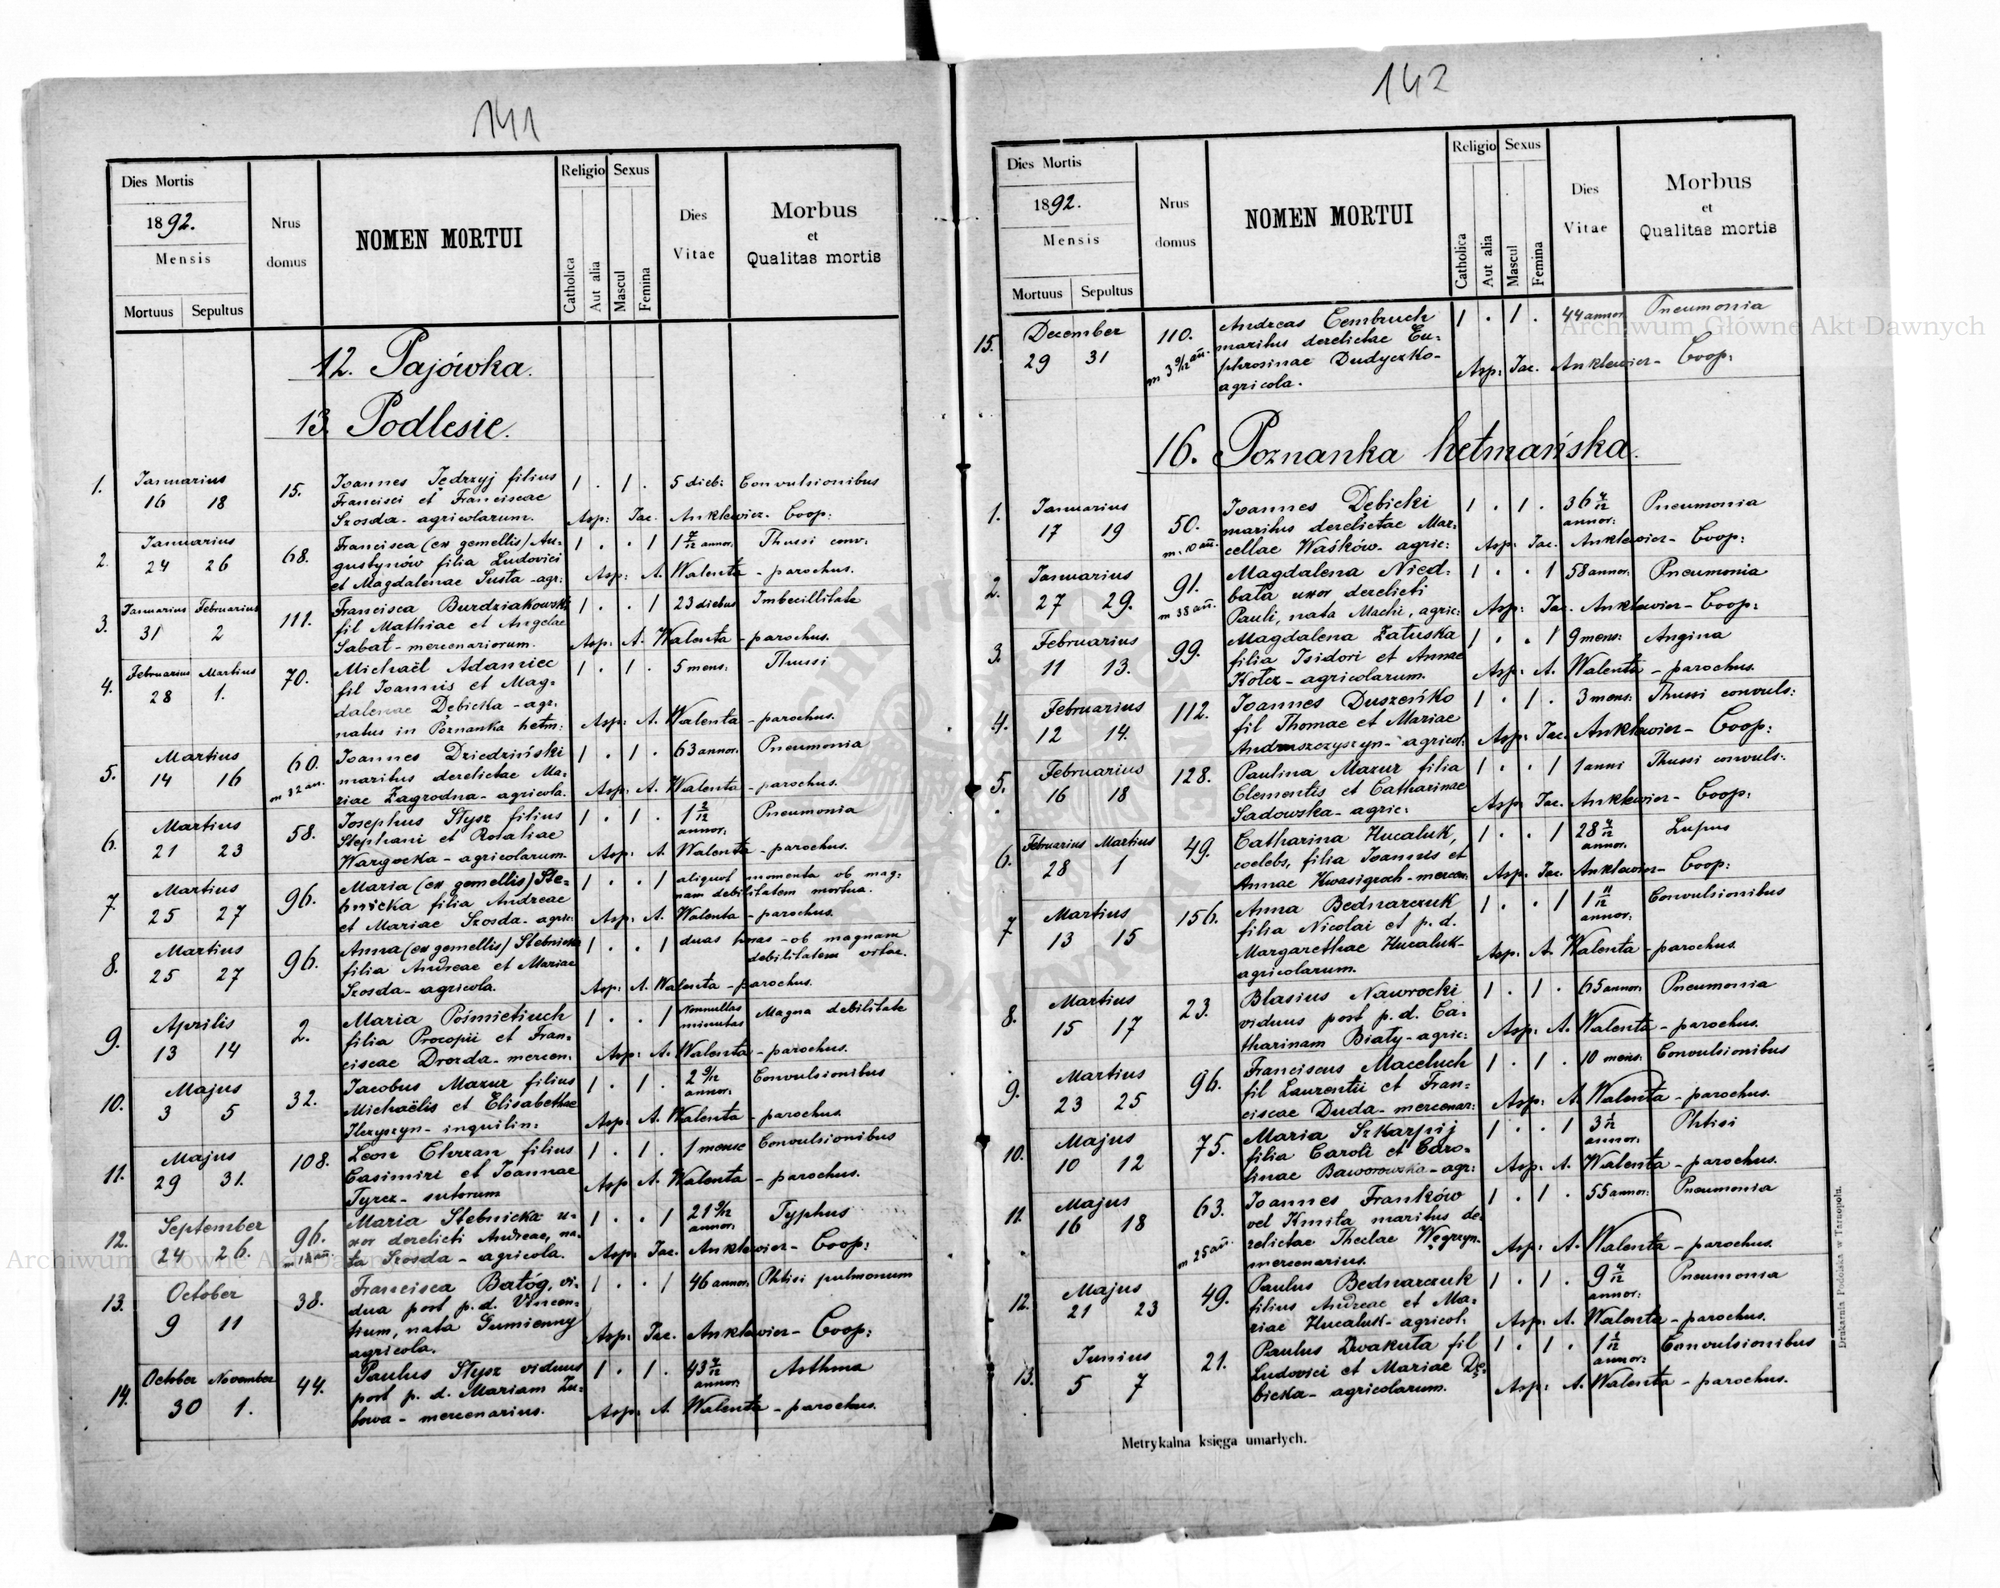 141
Dies Mortis
1892.
Mensis
Mortuus Sepultus
Nrus
domus
NOMEN MORTUI
Religio
Catholica
Aut alia
Sexus
Mascul
Femina
Dies
Vitae
Morbus
et
Qualitas mortis
12. Pajówka.
13. Podlesie.
1. Januarius 15. Joannes Jędrzyj filius 1 . 1 . 5 dieb: Convulsionibus
16 18 Francisci et Franciscae
Szosda - agricolarum. Asp: Jac. Anklewicz - Coop:
2. Januarius 68. Francisca (ex gemellis) Au- 1 . . 1 1 7/12 annor: Thussi conv:
24 26 gustynów filia Ludovici
et Magdalenae Susta - agr: Asp: A. Walenta - parochus.
3. Januarius Februarius 111. Francisca Burdziakowski 1 . . 1 23 diebus Imbecillitate
31 2 fil Mathiae et Angelae
Sabat - mercenariorum. Asp: A. Walenta - parochus.
4. Februarius Martius 70. Michaël Adamiec 1 . 1 . 5 mens: Thussi
28 1. fil Joannis et Mag-
dalenae Dębicka - agr.
natus in Poznanka hetm: Asp: A. Walenta - parochus.
5. Martius 60. Joannes Dziedziński 1 . 1 . 63 annor: Pneumonia
14 16 m 32 an. maritus derelictae Ma-
riae Zagrodna - agricola. Asp: A. Walenta - parochus.
6. Martius 58. Josephus Stysz filius 1 . 1 . 1 2/12 annor: Pneumonia
21 23 Stephani et Rosaliae
Wargocka - agricolarum. Asp: A. Walenta - parochus.
7. Martius 96. Maria (ex gemellis) Ste- 1 . . 1 aliquot momenta ob mag-
25 27 bnicka filia Andreae nam debilitatem mortua.
et Mariae Szosda - agric: Asp: A. Walenta - parochus.
8. Martius 96. Anna (ex gemellis) Stebnicka 1 . . 1 duas horas - ob magnam
25 27 filia Andreae et Mariae debilitatem vitae.
Szosda - agricola. Asp: A. Walenta - parochus.
9. Aprilis 2. Maria Pośmietiuch 1 . . 1 Nonnullas minutas Magna debilitate
13 14 filia Procopii et Fran-
ciscae Drozda - mercen: Asp: A. Walenta - parochus.
10. Majus 32. Jacobus Mazur filius 1 . 1 . 2 9/12 annor: Convulsionibus
3 5 Michaëlis et Elisabethae
Ilczyszyn - inquilin: Asp: A. Walenta - parochus.
11. Majus 108. Leon Chrzan filius 1 . 1 . 1 mense Convulsionibus
29 31. Casimiri et Joannae
Tyrcz - sutorum Asp: A. Walenta - parochus.
12. September 96. Maria Stebnicka u- 1 . . 1 21 9/12 annor: Typhus
24 26. xor derelicti Andreae, na-
ta Szosda - agricola. Asp: Jac. Anklewicz - Coop:
13. October 38. Francisca Batóg, vi- 1 . . 1 46 annor: Phtisi pulmonum
9 11 dua post p. d. Vincen-
tium, nata Gumienny
agricola. Asp: Jac. Anklewicz - Coop:
14. October November 44. Paulus Stysz viduus 1 . 1 . 43 annor: Asthma
30 1. post p. d. Mariam Zu-
bowa - mercenarius. Asp: A. Walenta - parochus.
142
Dies Mortis
1892.
Mensis
Mortuus Sepultus
Nrus
domus
NOMEN MORTUI
Religio
Catholica
Aut alia
Sexus
Mascul
Femina
Dies
Vitae
Morbus
et
Qualitas mortis
15. December 110. Andreas Cembruch 1 . 1 . 44 annor Pneumonia
29 31 m 3 9/12 añ. maritus derelictae Eu-
phrosinae Dudyczko- Asp: Jac. Anklewicz - Coop:
agricola.
16. Poznanka hetmańska.
1. Januarius 50. Joannes Dębicki 1 . 1 . 36 annor: Pneumonia
17 19 m. 10 añ. maritus derelictae Mar-
cellae Waśków - agric: Asp: Jac. Anklewicz - Coop:
2. Januarius 91. Magdalena Nied- 1 . . 1 58 annor: Pneumonia
27 29. m 38 añ. bała uxor derelicti
Pauli, nata Machi, agric: Asp: Jac. Anklewicz - Coop:
3. Februarius 99. Magdalena Załuska 1 . . 1 9 mens: Angina
11 13. filia Isidori et Annae
Kotcz - agricolarum. Asp: A. Walenta - parochus.
4. Februarius 112. Joannes Duszeńko 1 . 1 . 3 mens: Thussi convuls:
12 14. fil Thomae et Mariae
Andruszczyszyn - agricol: Asp: Jac. Anklewicz - Coop:
5. Februarius 128. Paulina Mazur filia 1 . . 1 1 anni Thussi convuls:
16 18 Clementis et Catharinae
Sadowska - agric: Asp: Jac. Anklewicz - Coop:
6. Februarius Martius 49. Catharina Hucaluk, 1 . . 1 28 annor: Lupus
28 1 coelebs, filia Joannis et
Annae Kwasigroch - mercen: Asp: Jac. Anklewicz - Coop:
7. Martius 156. Anna Bednarczuk 1 . . 1 1 11/12 annor: Convulsionibus
13 15 filia Nicolai et p. d.
Margarethae Hucaluk-
agricolarum. Asp: A. Walenta - parochus.
8. Martius 23. Blasius Nawrocki 1 . 1 . 65 annor: Pneumonia
15 17 viduus post p. d. Ca-
tharinam Biały - agric: Asp: A. Walenta - parochus.
9. Martius 96. Franciscus Maceluch 1 . 1 . 10 mens: Convulsionibus
23 25 fil Laurentii et Fran-
ciscae Duda - mercenar: Asp: A. Walenta - parochus.
10. Majus 75. Maria Szkarpij 1 . . 1 3 1/12 annor: Phtisi
10 12 filia Caroli et Caro-
linae Baworowska - agr: Asp: A. Walenta - parochus.
11. Majus 63. Joannes Franków 1 . 1 . 55 annor: Pneumonia
16 18 m 25 añ. vel Kmita maritus de-
relictae Theclae Węgrzyn-
mercenarius. Asp: A. Walenta - parochus.
12. Majus 49. Paulus Bednarczuk 1 . 1 . 9 4/12 annor: Pneumonia
21 23 filius Andreae et Ma-
riae Hucaluk - agricol. Asp: A. Walenta - parochus.
13. Junius 21. Paulus Dwakuta fil 1 . 1 . 1 1/12 annor: Convulsionibus
5 7 Ludovici et Mariae Dę-
bicka - agricolarum. Asp: A. Walenta - parochus.
Metrykalna księga umarłych.
Drukarnia Podolska w Tarnopolu.
Archiwum Główne Akt Dawnych
Archiwum Główne Akt Dawnych